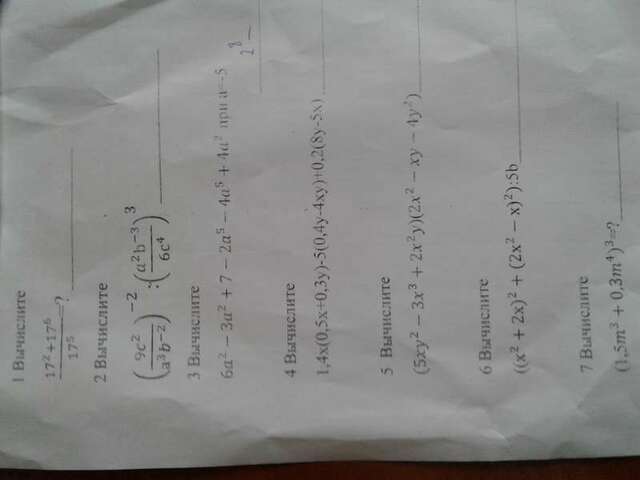 1 Вычислите
(17²+17⁶)/17⁵=?
2 Вычислите
(9c²/(a³b⁻²))⁻² : ((a²b⁻³)/(6c⁴))³
3 Вычислите
6a² − 3a² + 7 − 2a⁵ − 4a⁵ + 4a² при a=-5
4 Вычислите
1,4x(0,5x+0,3y)-5(0,4y-4xy)+0,2(8y-5x)
5 Вычислите
(5xy² − 3x³ + 2x²y)(2x² − xy − 4y²)
6 Вычислите
((x² + 2x)² + (2x² − x)²):5b
7 Вычислите
(1,5m³ + 0,3m⁴)³=?